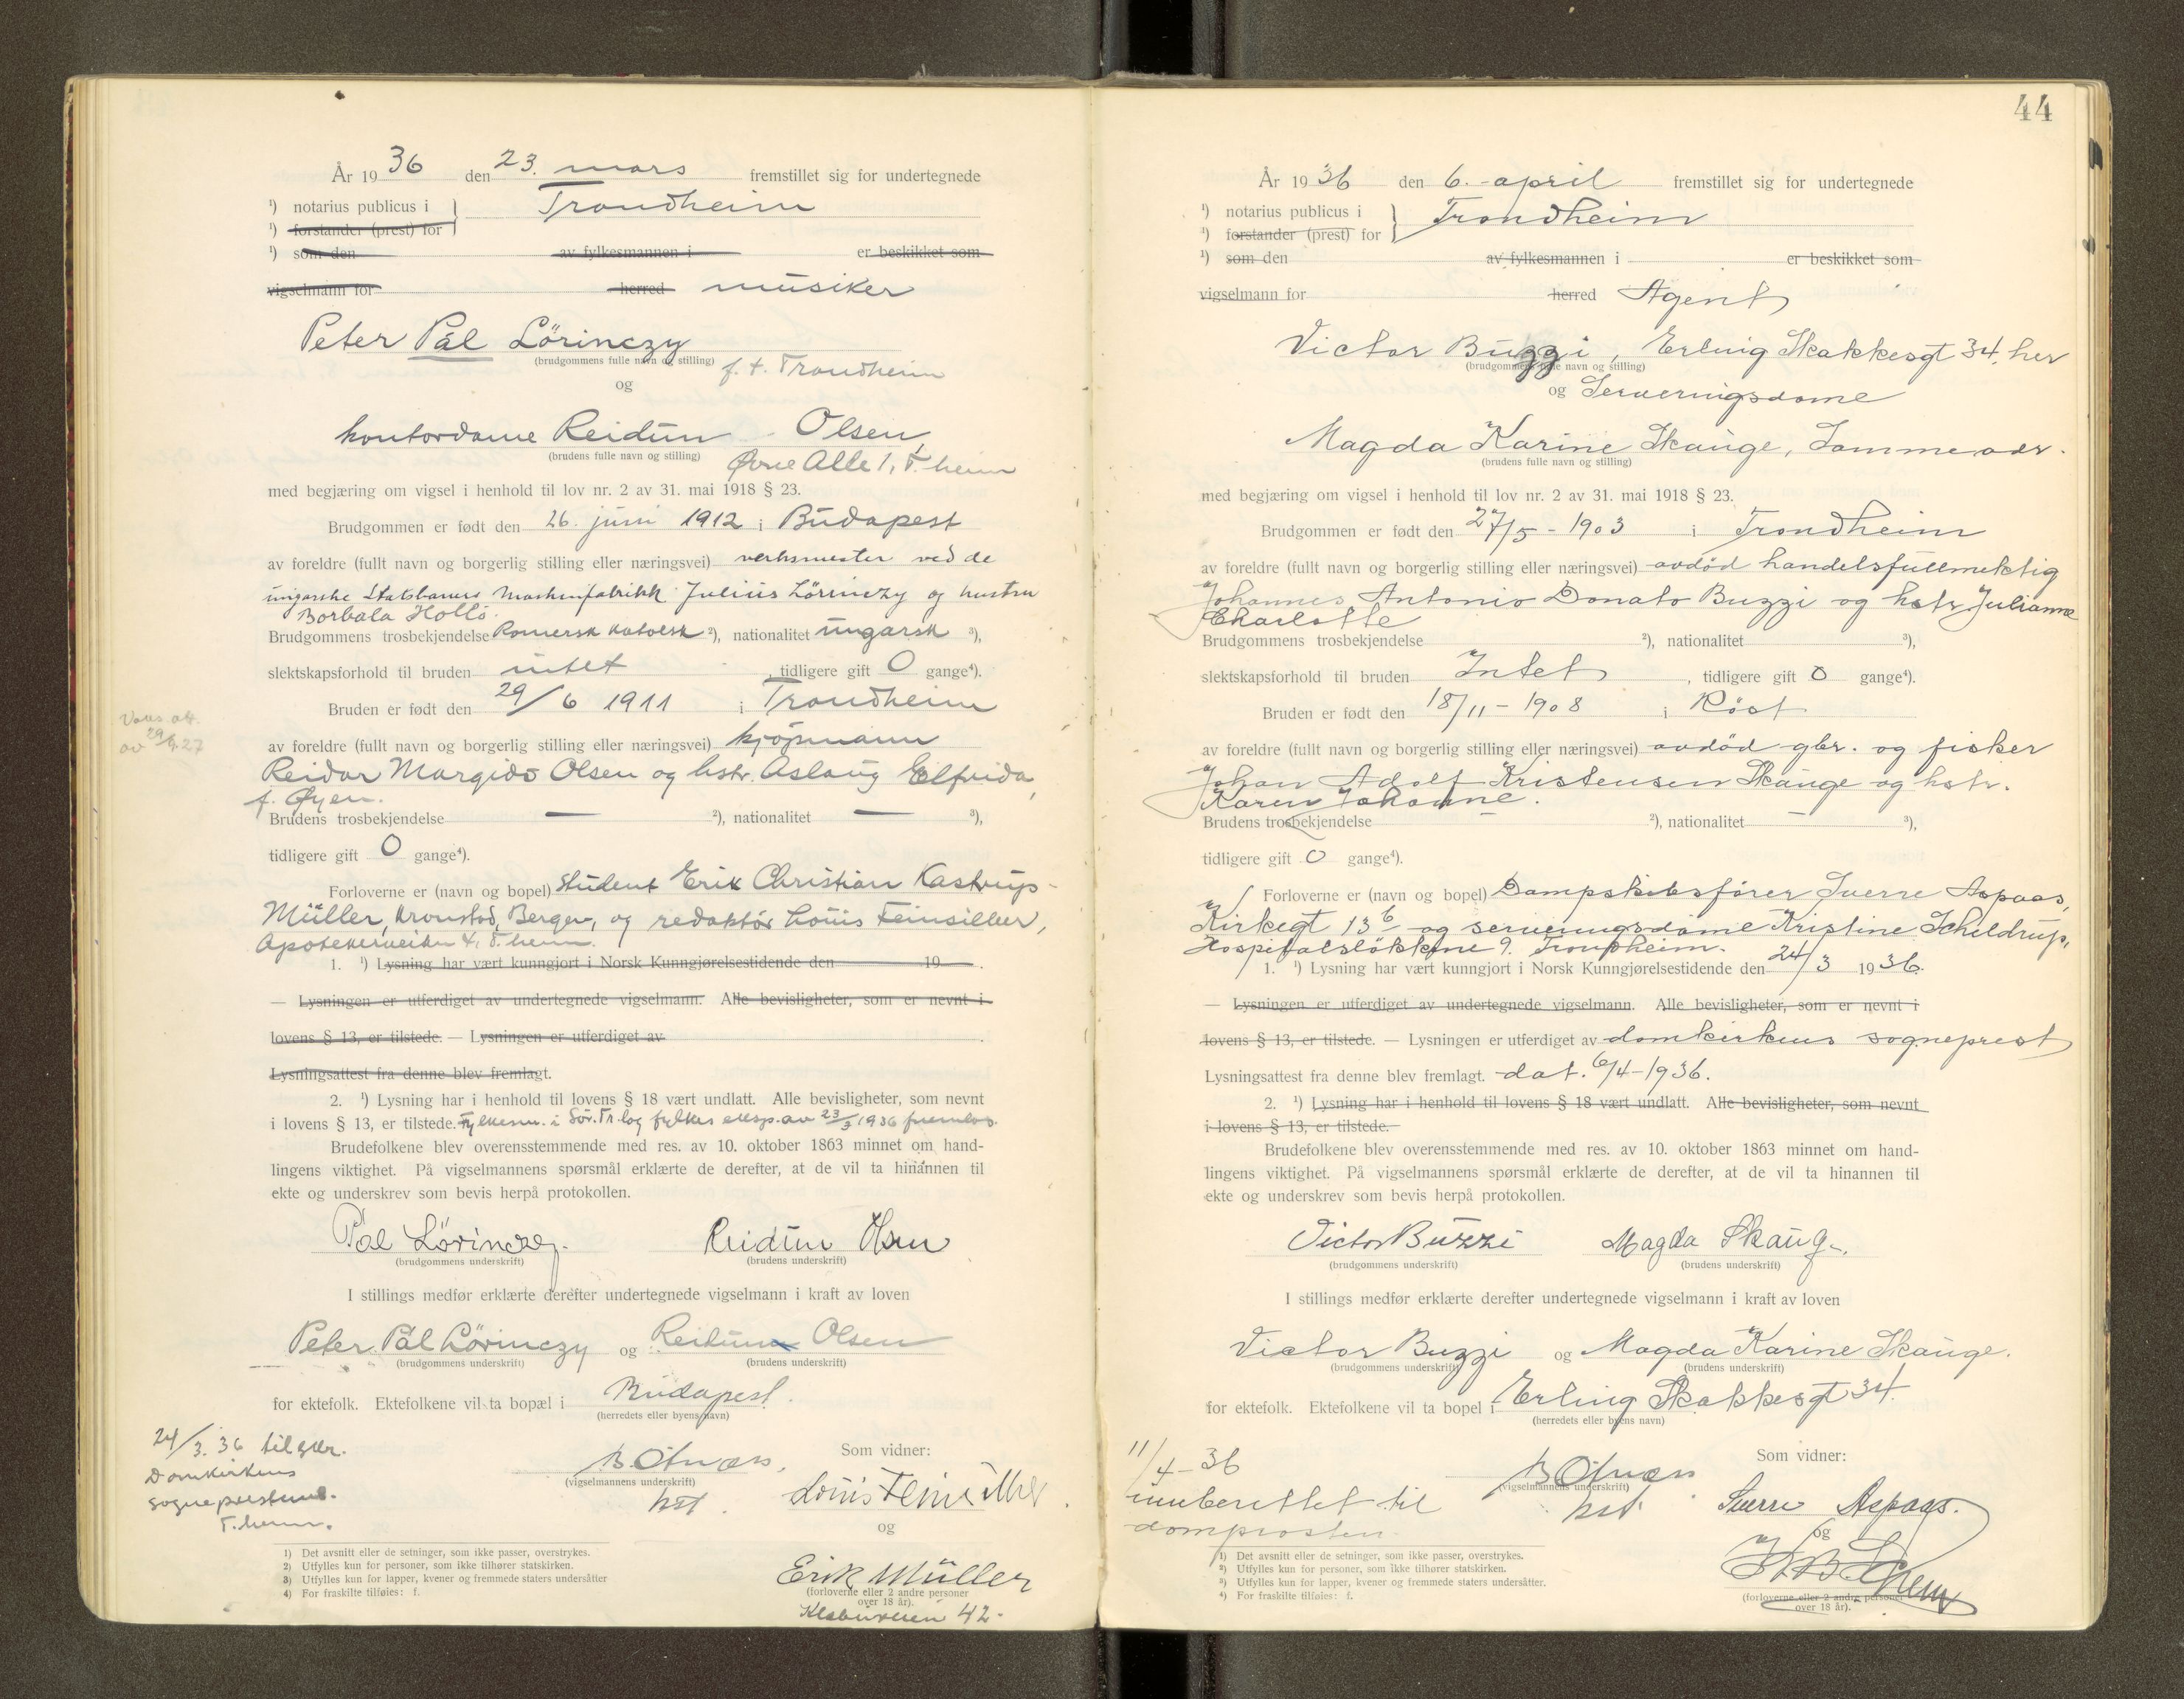 År 1936 den 23. mars fremstillet sig for undertegnede
¹) notarius publicus i } Trondheim
¹) forstander (prest) for
¹) som den av fylkesmannen i er beskikket som
vigselmann for herred musiker
Peter Pál Lörinczy
(brudgommens fulle navn og stilling) f. t. Trondheim
og
kontordame Reidun Olsen,
(brudens fulle navn og stilling) Øvre Alle 1, T.heim
med begjæring om vigsel i henhold til lov nr. 2 av 31. mai 1918 § 23.
Brudgommen er født den 26. juni 1912 i Budapest
av foreldre (fullt navn og borgerlig stilling eller næringsvei) verksmester ved de
ungarske Statsbaners Maskinfabrikk Julius Lörinczy og hustru
Borbala Hollo.
Brudgommens trosbekjendelse Romersk katolsk ²), nationalitet ungarsk ³),
slektskapsforhold til bruden intet, tidligere gift 0 gange⁴).
Bruden er født den 29/6 1911 i Trondheim
av foreldre (fullt navn og borgerlig stilling eller næringsvei) kjøpmann
Reidar Margido Olsen og hstr. Aslaug Elfrida,
f. Øyen.
Brudens trosbekjendelse — ²), nationalitet — ³),
tidligere gift 0 gange⁴).
Forloverne er (navn og bopel) Student Erik Christian Kastrup-
Müller, Kronstad, Bergen, og redaktør Louis Feinsilber,
Apotekerveiten 4, T.heim.
1. ¹) Lysning har vært kunngjort i Norsk Kunngjørelsestidende den 19 .
— Lysningen er utferdiget av undertegnede vigselmann. Alle bevisligheter, som er nevnt i
lovens § 13, er tilstede. — Lysningen er utferdiget av .
Lysningsattest fra denne blev fremlagt.
2. ¹) Lysning har i henhold til lovens § 18 vært undlatt. Alle bevisligheter, som nevnt
i lovens § 13, er tilstede. Fylkesm. i Sør-Tr.lag fylkes eksp. av 23/3 1936 fremlos.
Brudefolkene blev overensstemmende med res. av 10. oktober 1863 minnet om hand-
lingens viktighet. På vigselmannens spørsmål erklærte de derefter, at de vil ta hinannen til
ekte og underskrev som bevis herpå protokollen.
Pál Lörinczy. Reidun Olsen
(brudgommens underskrift) (brudens underskrift)
I stillings medfør erklærte derefter undertegnede vigselmann i kraft av loven
Peter Pál Lörinczy og Reidun Olsen
(brudgommens underskrift) (brudens underskrift)
for ektefolk. Ektefolkene vil ta bopæl i Budapest.
(herredets eller byens navn)
24/3. 36 til
Domkirkens
sogneprest
T.heim.
(vigselmannens underskrift)
Som vidner:
Louis Feinsilber
og
Erik Müller
(forloverne eller 2 andre personer
over 18 år).
Klæbuveien 42.
1) Det avsnitt eller de setninger, som ikke passer, overstrykes.
2) Utfylles kun for personer, som ikke tilhører statskirken.
3) Utfylles kun for lapper, kvener og fremmede staters undersåtter
4) For fraskilte tilføies: f.
44
År 1936 den 6. april fremstillet sig for undertegnede
¹) notarius publicus i } Trondheim
¹) forstander (prest) for
¹) som den av fylkesmannen i er beskikket som
vigselmann for herred Agent
Victor Buzzi, Erling Skakkesgt 34, her
(brudgommens fulle navn og stilling)
og Serveringsdame
Magda Karine Skauge, Samme adr.
(brudens fulle navn og stilling)
med begjæring om vigsel i henhold til lov nr. 2 av 31. mai 1918 § 23.
Brudgommen er født den 27/5 - 1903 i Trondheim
av foreldre (fullt navn og borgerlig stilling eller næringsvei) avdød handelsfullmektig
Johannes Antonio Donato Buzzi og hstr Julianne
Charlotte
Brudgommens trosbekjendelse ²), nationalitet ³),
slektskapsforhold til bruden Intet, tidligere gift 0 gange⁴).
Bruden er født den 18/11 - 1908 i Røst
av foreldre (fullt navn og borgerlig stilling eller næringsvei) avdød gbr. og fisker
Johan Adolf Kristensen Skauge og hstr.
Karen Johanne.
Brudens trosbekjendelse ²), nationalitet ³),
tidligere gift 0 gange⁴).
Forloverne er (navn og bopel) Dampskibsfører Sverre Aspaas,
Kirkegt 13 b og serveringsdame Kristine Schildrup,
Hospitalsløkkene 9. Trondheim.
1. ¹) Lysning har vært kunngjort i Norsk Kunngjørelsestidende den 24/3 1936.
— Lysningen er utferdiget av undertegnede vigselmann. Alle bevisligheter, som er nevnt i
lovens § 13, er tilstede. — Lysningen er utferdiget av domkirkens sogneprest
Lysningsattest fra denne blev fremlagt. dat. 6/4-1936.
2. ¹) Lysning har i henhold til lovens § 18 vært undlatt. Alle bevisligheter, som nevnt
i lovens § 13, er tilstede.
Brudefolkene blev overensstemmende med res. av 10. oktober 1863 minnet om hand-
lingens viktighet. På vigselmannens spørsmål erklærte de derefter, at de vil ta hinannen til
ekte og underskrev som bevis herpå protokollen.
Victor Buzzi Magda Skauge.
(brudgommens underskrift) (brudens underskrift)
I stillings medfør erklærte derefter undertegnede vigselmann i kraft av loven
Victor Buzzi og Magda Karine Skauge.
(brudgommens underskrift) (brudens underskrift)
for ektefolk. Ektefolkene vil ta bopel i Erling Skakkesgt 34.
(herredets eller byens navn)
11/4-36
innberettet til
domprosten.
(vigselmannens underskrift)
Som vidner:
Sverre Aspaas.
og
(forloverne eller 2 andre personer
over 18 år).
1) Det avsnitt eller de setninger, som ikke passer, overstrykes.
2) Utfylles kun for personer, som ikke tilhører statskirken.
3) Utfylles kun for lapper, kvener og fremmede staters undersåtter.
4) For fraskilte tilføies: f.